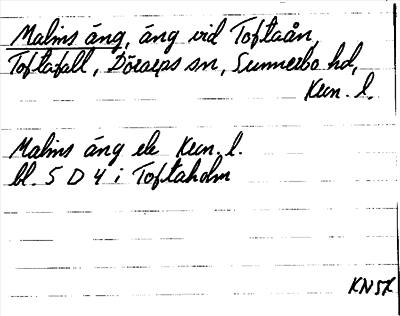 Malms äng, äng vid Toftaån,
Toftafall, Döraeps sn, Sunnerbo hd,
Kron. l.
Malms äng ek Kron. l.
bl. 5 D 4 i Toftaholm
KN57